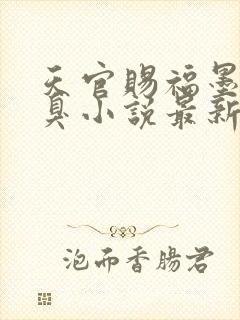 天官赐福墨
臭小说最新
泡而香肠君